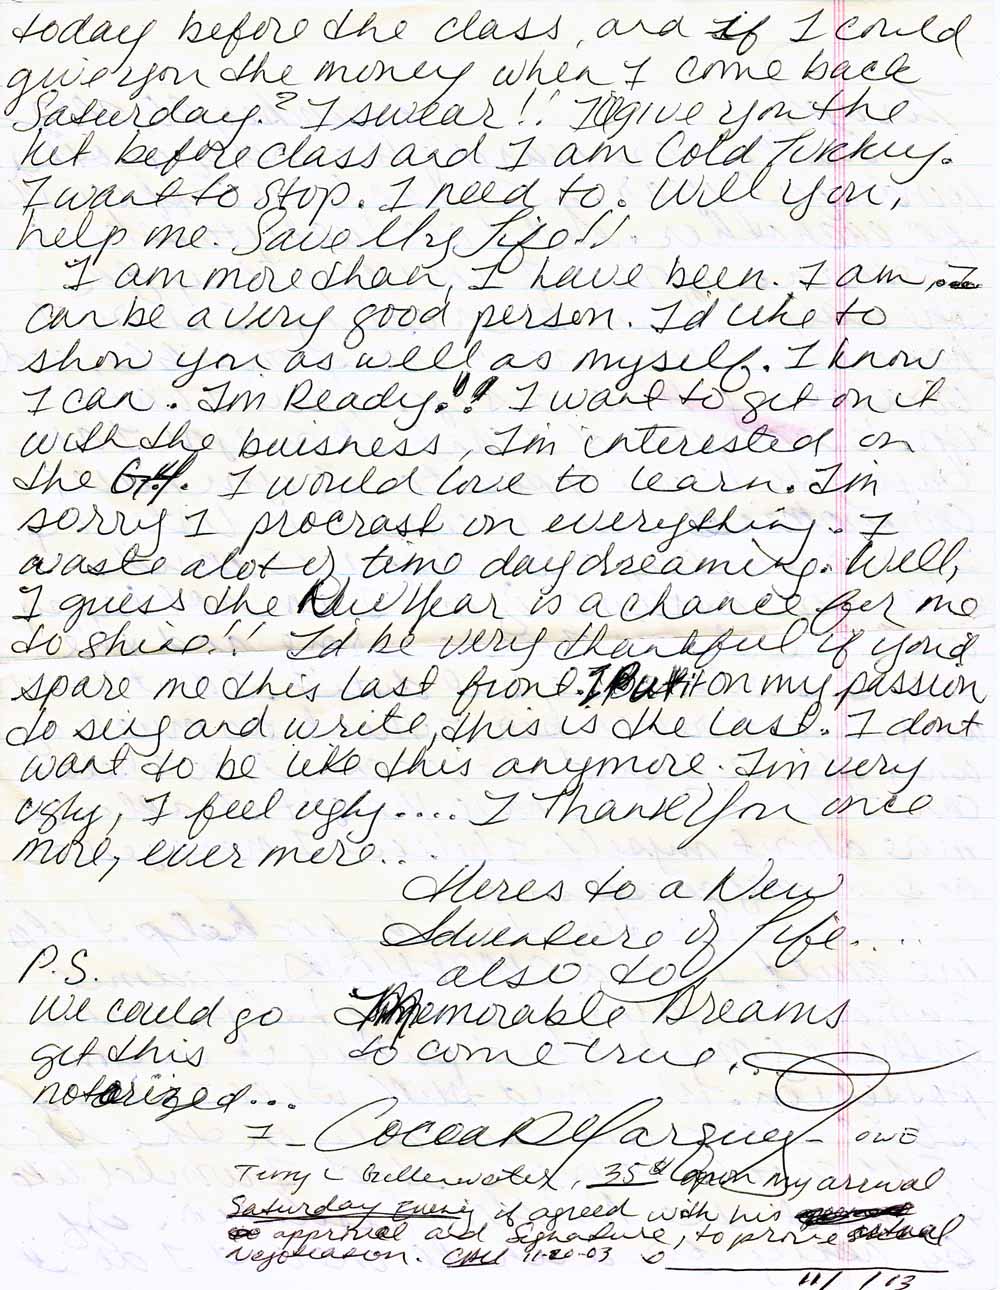 today before the class, and if I could
give you the money when I come back
Saturday? I swear!! I'll give you the
kit before class and I am Cold Turkey.
I want to stop. I need to. Will you,
help me. Save My Life!!
I am more than, I have been. I am,
can be a very good person. I'd like to
show you as well as myself. I know
I can. I'm Ready!!! I want to get on it
with the buisness, I'm interested on
the G.H. I would love to learn. I'm
sorry I procrast on everything. I
waste alot of time day dreaming. Well,
I guess the New Year is a chance for me
to shine!! I'd be very thankful if you'd
spare me this last front. I Put it on my passion
to sing and write, this is the last. I dont
want to be like this anymore. I'm very
ugly, I feel ugly.... I Thank You once
more, ever more...
Heres to a New
Adventure of Life....
also to
Memorable Dreams
to come true...
P.S.
We could go
get this
notorized...
I - Cocoa D Marquez - OWE
Terry L Gullenwater, 35 upon my arrival
Saturday Evening if agreed with his
approval and Signature, to prove actual
Negotiation. 11-20-03
11/ /03